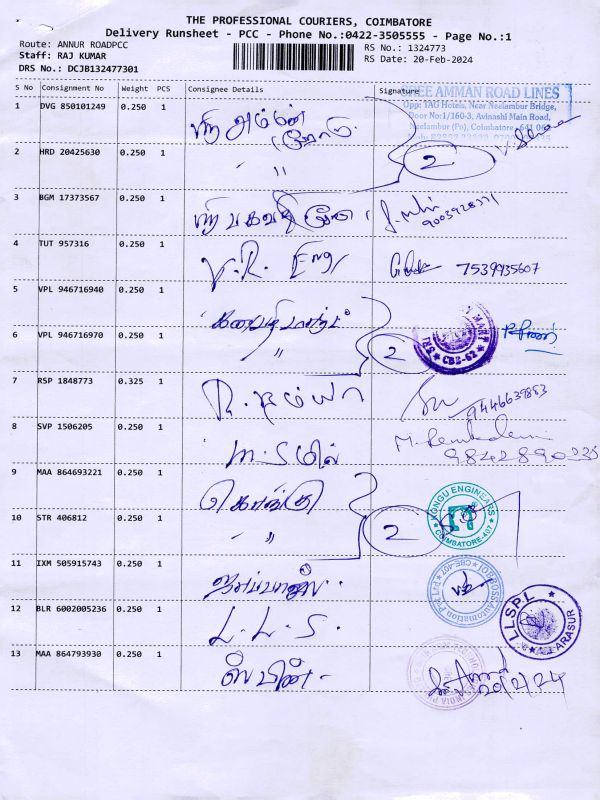 THE PROFESSIONAL COURIERS, COIMBATORE
Delivery Runsheet - PCC - Phone No.:0422-3505555 - Page No.:1
Route: ANNUR ROADPCC
RS No.: 1324773
Staff: RAJ KUMAR
RS Date: 20-Feb-2024
DRS No.: DCJB132477301
S No Consignment No Weight PCS Consignee Details Signature
AMMAN ROAD LINES
Opp: TAG Hotels, Near Neelambur Bridge,
Door No:1/160-3, Avinashi Main Road,
Neelambur (Po), Coimbatore - 641 062
1 DVG 850101249 0.250 1 ஸ்ரீ அம்மன்
2 HRD 20425630 0.250 1 " 2
3 BGM 17373567 0.250 1 ஸ்ரீ பகவதி
4 TUT 957316 0.250 1 V.R. Eng 7539935607
5 VPL 946716940 0.250 1
6 VPL 946716970 0.250 1 " 2 CBE-62
7 RSP 1848773 0.325 1 R. 9446639883
8 SVP 1506205 0.250 1 M.S மில் 9842890235
9 MAA 864693221 0.250 1 கொங்கு
KONGU ENGINEARS COIMBATORE-407
10 STR 406812 0.250 1 " 2
11 IXM 505915743 0.250 1
CBE-407
12 BLR 6002005236 0.250 1 L.L.S. L.L.S.P.L ARASUR
13 MAA 864793930 0.250 1 20/2/24